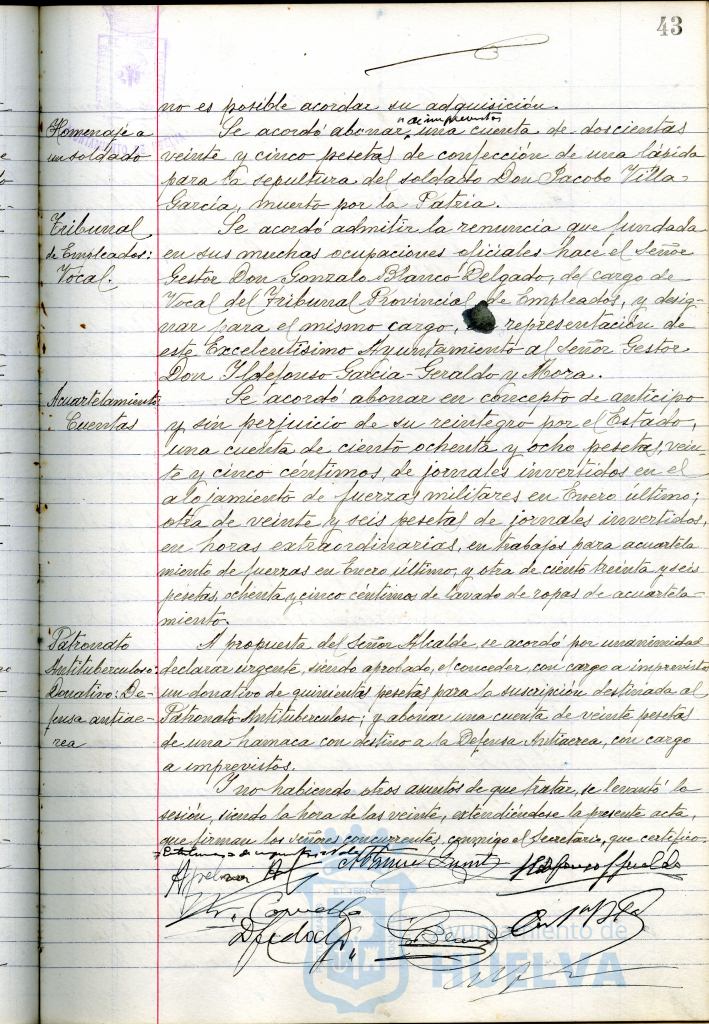 43
no es posible acordar su adquisición.
Homenaje a
un soldado
Se acordó abonar "de imprevistos" una cuenta de doscientas
veinte y cinco pesetas de confección de una lápida
para la sepultura del soldado Don Jacobo Villa-
García, muerto por la Patria.
Tribunal
de Empleados:
Vocal.
Se acordó admitir la renuncia que fundada
en sus muchas ocupaciones oficiales hace el Señor
Gestor Don Gonzalo Blanco Delgado, del cargo de
Vocal del Tribunal Provincial de Empleados, y desig-
nar para el mismo cargo, representación de
este Excelentísimo Ayuntamiento al Señor Gestor
Don Ildefonso García-Geraldo y Mora.
Acuartelamiento
: Cuentas
Se acordó abonar en concepto de anticipo
y sin perjuicio de su reintegro por el Estado,
una cuenta de ciento ochenta y ocho pesetas, vein-
te y cinco céntimos, de jornales invertidos en el
alojamiento de fuerzas militares en Enero último;
otra de veinte y seis pesetas de jornales invertidos,
en horas extraordinarias, en trabajos para acuartela
miento de fuerzas en Enero último, y otra de ciento treinta y seis
pesetas, ochenta y cinco céntimos de lavado de ropas de acuartela-
miento.
Patronato
Antituberculoso:
Donativo: De-
fensa antiaé-
rea
A propuesta del Señor Alcalde, se acordó por unanimidad
declarar urgente, siendo aprobado, el conceder, con cargo a imprevistos
un donativo de quinientas pesetas para la suscripción destinada al
Patronato Antituberculoso; y abonar una cuenta de veinte pesetas
de una hamaca con destino a la Defensa Antiaerea, con cargo
a imprevistos.
Y no habiendo otros asuntos de que tratar, se levantó la
sesión, siendo la hora de las veinte, extendiéndose la presente acta,
que firman los señores concurrentes, conmigo el Secretario, que certifico.
Ayuntamiento de
HUELVA